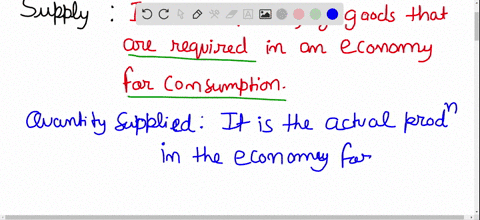 Supply : I goods that
are required in an economy
for consumption.
Quantity Supplied: It is the actual prodⁿ
in the economy for